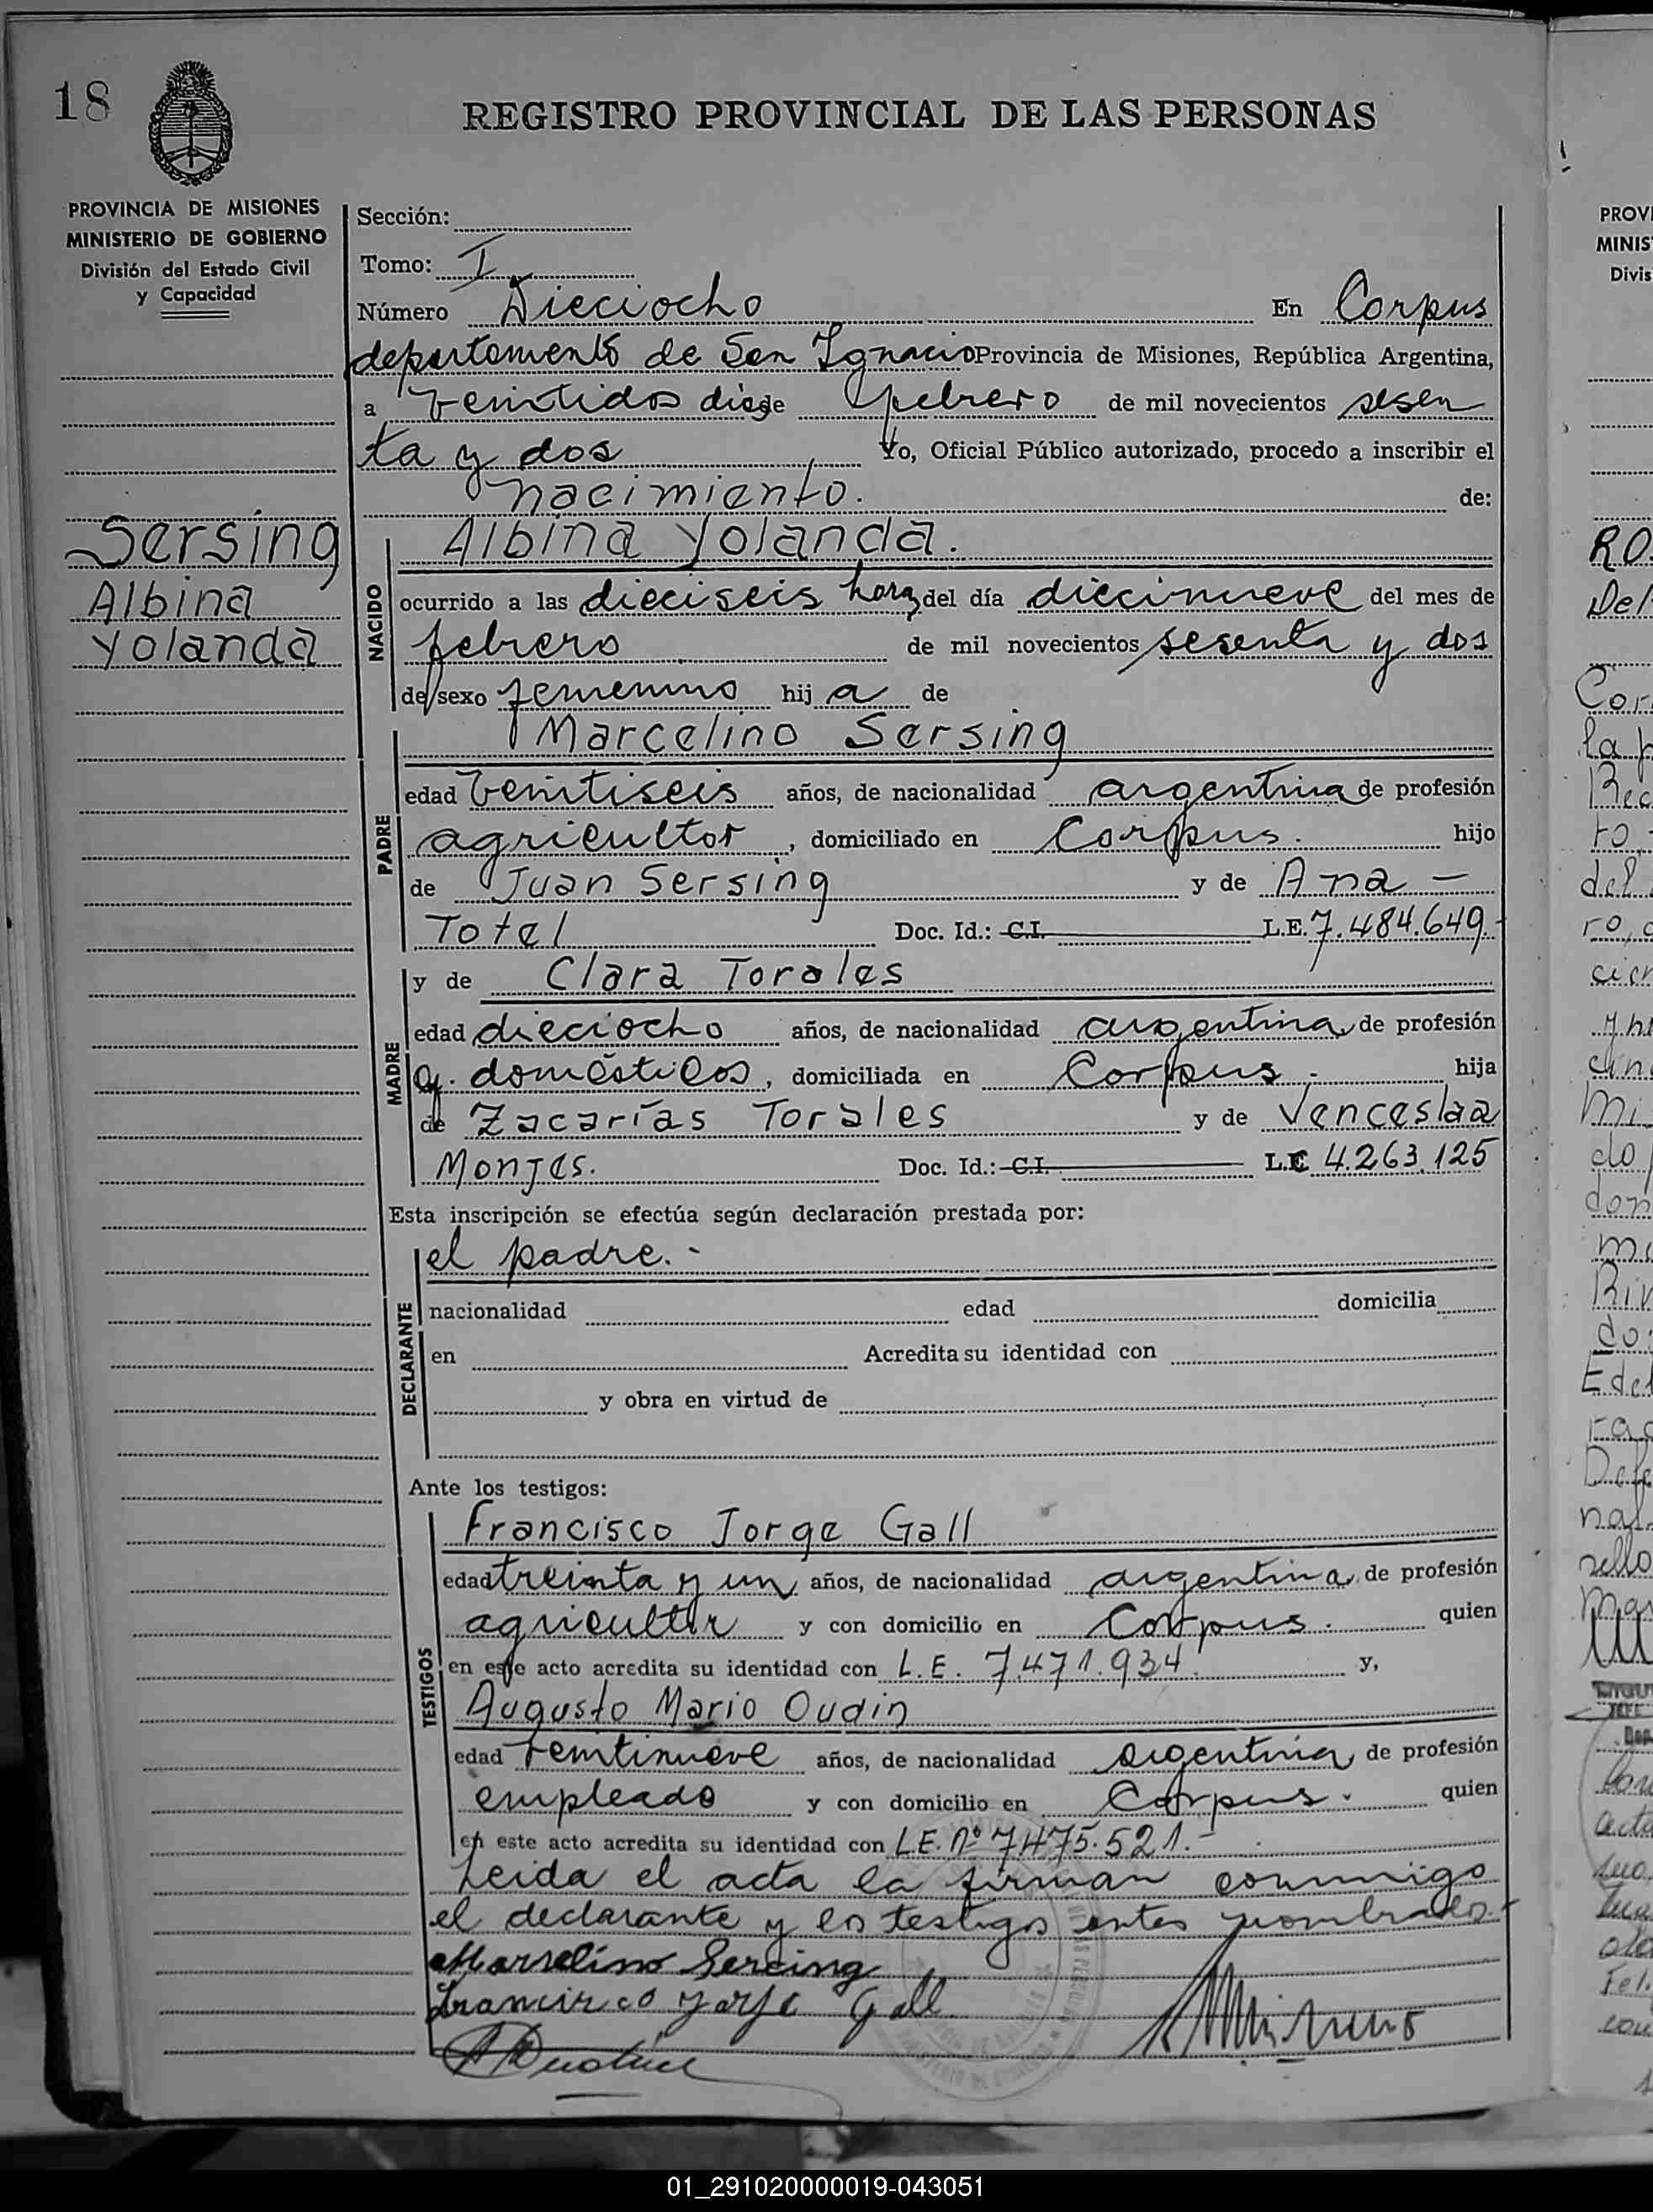 18
REGISTRO PROVINCIAL DE LAS PERSONAS
PROVINCIA DE MISIONES
MINISTERIO DE GOBIERNO
División del Estado Civil
y Capacidad
Sección:
Tomo: I
Número Dieciocho En Corpus
departamento de San Ignacio Provincia de Misiones, República Argentina,
a veintidos dias de febrero de mil novecientos sesen
ta y dos Yo, Oficial Público autorizado, procedo a inscribir el
nacimiento. de:
Sersing
Albina
Yolanda
NACIDO
Albina Yolanda.
ocurrido a las dieciseis horas del día diecinueve del mes de
febrero de mil novecientos sesenta y dos
de sexo femenino hij a de
PADRE
Marcelino Sersing
edad veintiseis años, de nacionalidad argentina de profesión
agricultor, domiciliado en Corpus. hijo
de Juan Sersing y de Ana -
Totel Doc. Id.: C.I. L.E. 7.484.649.-
MADRE
y de Clara Torales
edad dieciocho años, de nacionalidad argentina, de profesión
q. domésticos, domiciliada en Corpus.- hija
de Zacarías Torales y de Venceslaa
Monjes. Doc. Id.: C.I. L.C 4.263.125
Esta inscripción se efectúa según declaración prestada por:
DECLARANTE
el padre.-
nacionalidad edad domicilia
en Acredita su identidad con
y obra en virtud de
Ante los testigos:
TESTIGOS
Francisco Jorge Gall
edad treinta y un años, de nacionalidad argentina, de profesión
agricultor y con domicilio en Corpus. quien
en este acto acredita su identidad con L.E. 7.471.934. y,
Augusto Mario Oudin
edad veintinueve años, de nacionalidad argentina, de profesión
empleado y con domicilio en Corpus. quien
en este acto acredita su identidad con L.E. Nº 7.475.521.-
Leida el acta la firman conmigo
el declarante y los testigos antes nombrados.-
Marselino Sercing
Francirco Yorje Gall
01_291020000019-043051